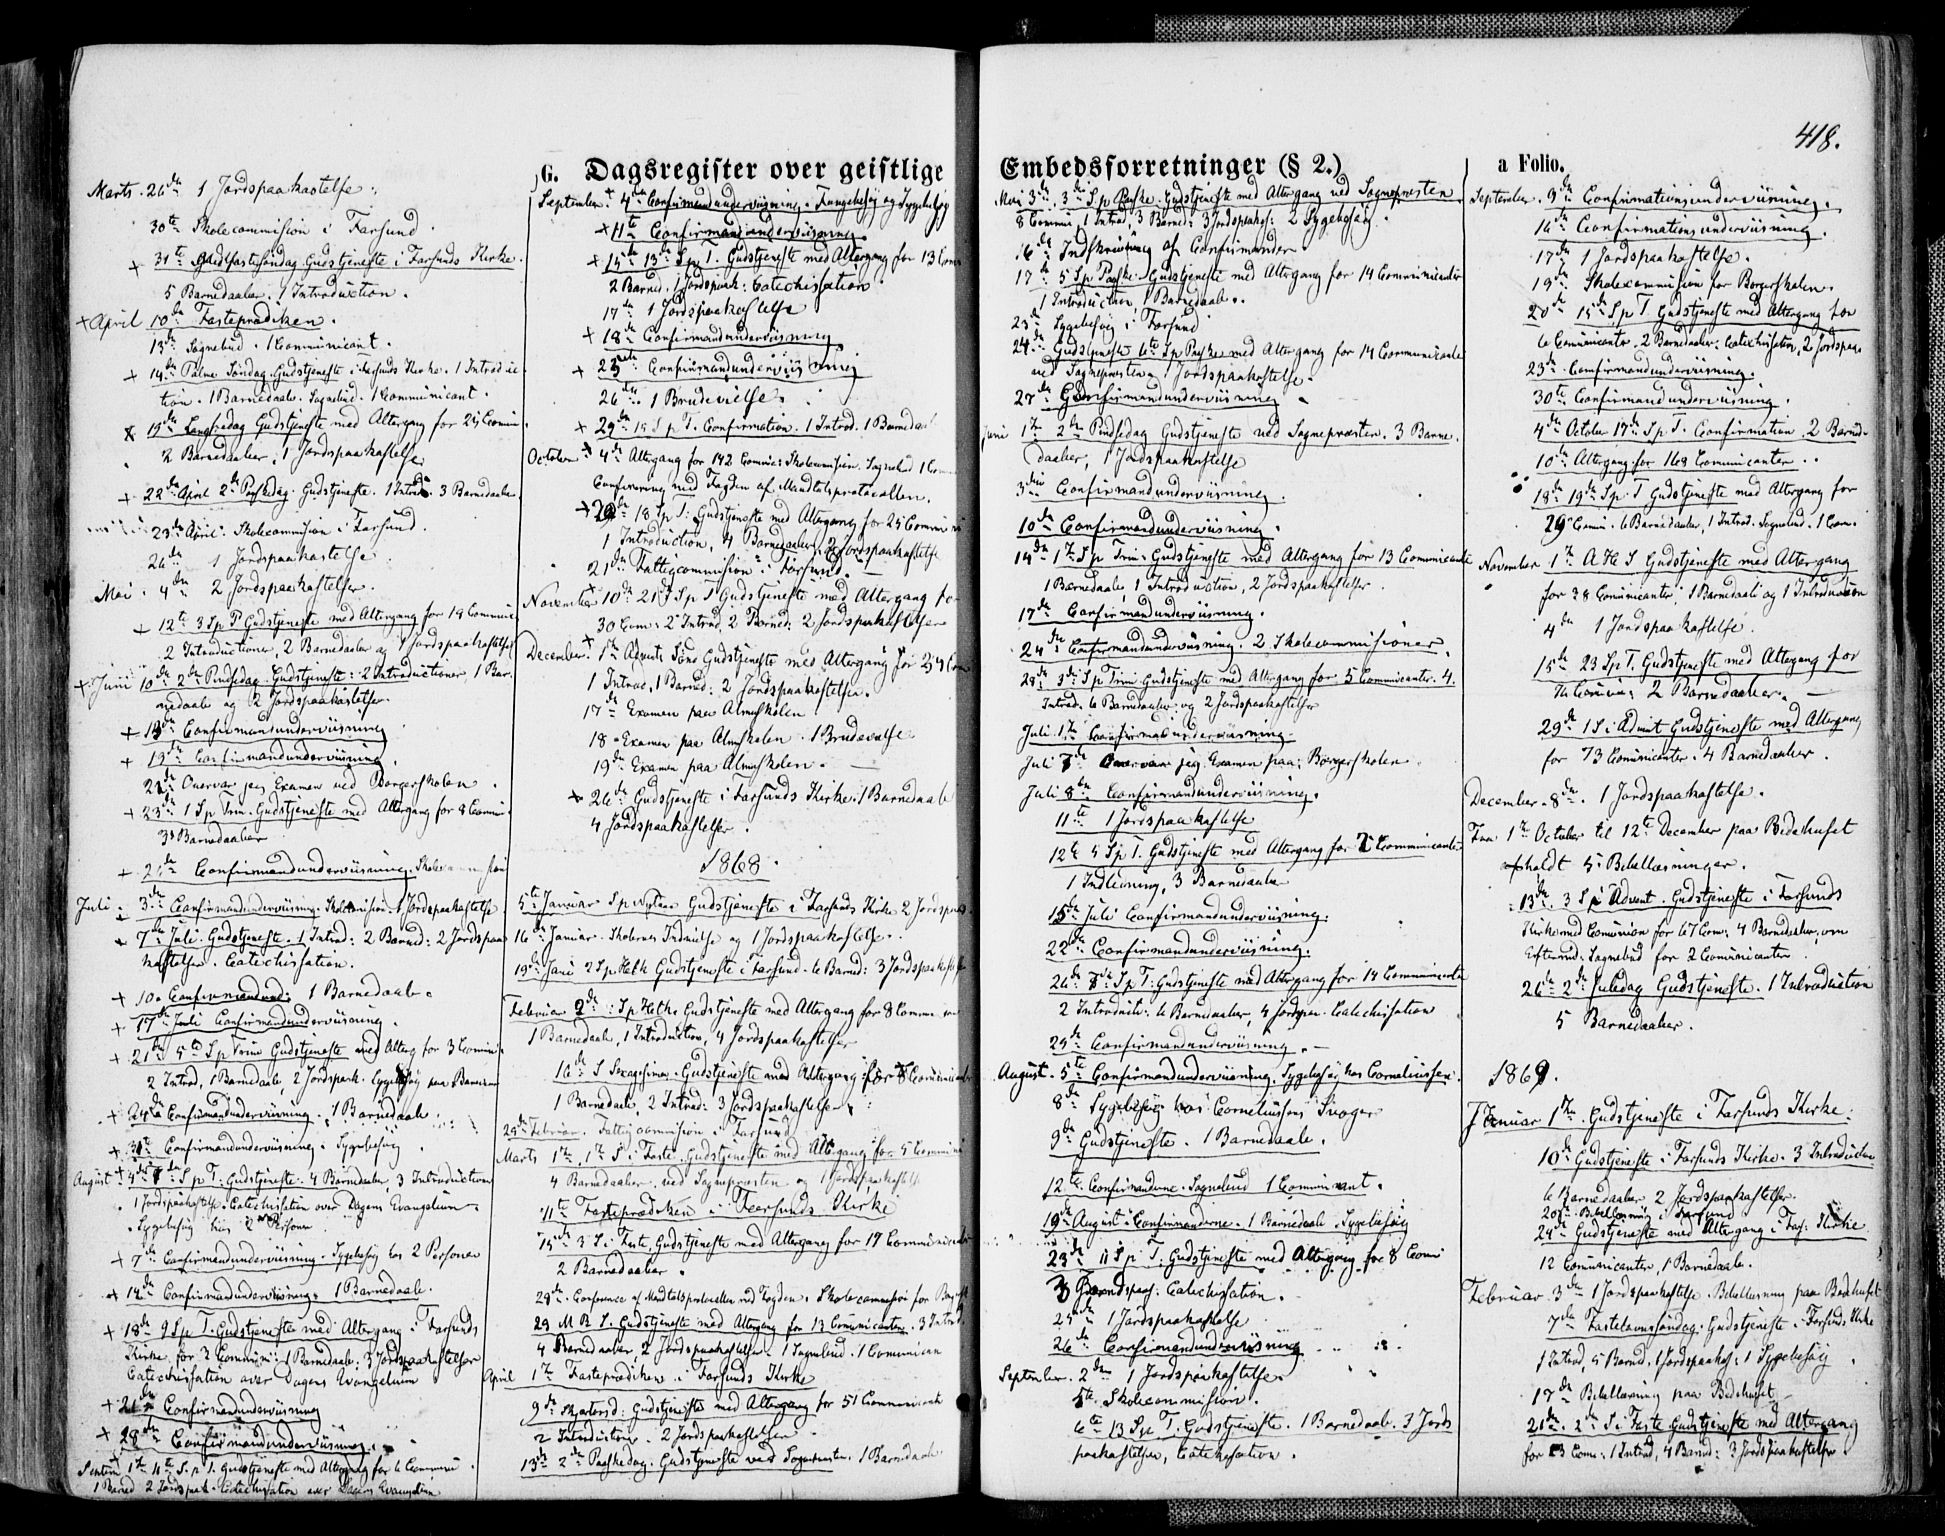 G. Dagsregister over geistlige
Marts. 26de 1 Jordspaakastelse.
30te Skolecommission i Farsund.
31te Midfastesöndag Gudstjeneste i Farsunds Kirke.
5 Barnedaaber. 1 Introduction.
April 10de Fasteprædiken.
13de Sognebud. 1 Communicant.
14de Palme Söndag Gudstjeneste i Farsunds Kirke. 1 Introduc
tion. 1 Barnedaab. Sognebud. 1 Communicant.
Langfredag Gudstjeneste med Altergang for 25 Commun
2 Barnedaaber, 1 Jordspaakastelse
22de April 2den Paaskedag. Gudstjeneste. 1 Introd. 3 Barnedaaber
23de April. Skolecommission i Farsund.
26de 1 Jordspaakastelse.
Mai. 4de 2 Jordspaakastelser.
12te 3 S p P Gudstjeneste med Altergang for 19 Commun
2 Introductioner, 2 Barnedaaber og 1 Jordspaakastelse
Juni 10de 2den Pindsedag. Gudstjeneste: 2 Introductioner, 1 Bar
nedaab og 2 Jordspaakastelser.
Confirmandundervisning
19de Confirmandundervisning.
Overvar jeg Examen ved Borgerskolen.
23de 1 S p Trin. Gudstjeneste med Altergang for 8 Commun
3 Barnedaaber
Confirmandundervisning
Juli. 3die Confirmandundervisning. Skolecommission. 1 Jordspaakastelse
7de Juli. Gudstjeneste. 1 Introd: 2 Barned: 2 Jordspaa
kastelser. Catechisation.
10. Confirmandund: 1 Barnedaab.
17de Juli Confirmandundervisning.
21de 5te S p Trin Gudstjeneste med Alterg for 3 Commun.
2 Introd, 1 Barnedaab, 2 Jordspaak. Sygebesøg
24de Confirmandundervisning. 1 Barnedaab.
31te Confirmandundervisning. Sygebesøg
August 4de S p T: Gudstjeneste. 4 Barnedaaber, 3 Introductioner
1 Jordspaakastelse. Catechisation over Dagens Evangelium.
Sygebesøg hos 2 Personer
7de Confirmandundervisning. Sygebesøg hos 2 Personer
14de Confirmandundervisning. 1 Barnedaab.
18de 9 S p T. Gudstjeneste med Altergang i Farsunds
Kirke for 3 Commun: 1 Barnedaab: 3 Jordspaakastelser
Catechisation over Dagens Evangelium
21de Confirmandundervisning
28de Confirmandundervisning.
1te 11te S. p T. Gudstjeneste med Altergang for 6 Commun
1 Barned 2 Jordspaak. Catechisation over Dagens Evangelium
September. 4de Confirmandundervisning. og Sygebesøg
11te Confirmandundervisning.
15de 13de S p T. Gudstjeneste med Altergang for 13 Com
2 Barned, 1 Jordspaak: Catechisation.
17de 1 Jordspaakastelse
18de Confirmandundervisning
Confirmandundervisning
26de 1 Brudevielse.
29de 15 S p T. Confirmation. 1 Introd. 1 Barnedaab
October 4de Altergang for 142 Commun: Skolecommission. Sognebud 1 Comm
Conferering med Fogden af Mandtalsprotocollen.
18 S p T: Gudstjeneste med Altergang for 25 Commun
1 Introduction, 4 Barnedaaber, 2 Jordspaakastelse
21de Fattigcommission i Farsund.
November 10de 21 S p T Gudstjeneste med Altergang for
30 Com: 2 Introd, 2 Barned: 2 Jordspaakastelser
December. 1ste Advents Sönd Gudstjeneste med Altergang for Com
1 Introd, 1 Barned: 2 Jordspaakastelser.
17de Examen paa Almuskolen
18 Examen paa Almuskolen. 1 Brudevielse
19de Examen paa Almuskolen.
26de Gudstjeneste i Farsunds Kirke. 1 Barnedaab
4 Jordspaakastelser.
1868.
5te Januar S p Nytaar Gudstjeneste i Farsunds Kirke 2 Jordspaa
16de Januar. Skolernes Indvielse og 1 Jordspaakastelse.
19de Janr 2 S p H 3 K Gudstjeneste i Farsund. 6 Barned: 3 Jordspaakast
Februar 2de: S p H 3 K Gudstjeneste med Altergang for 8 Commun
1 Barnedaab, 1 Introduction, 4 Jordspaakastelser
16de S Sexagesima. Gudstjeneste med Altergang for 8 Communicanter
1 Barnedaab, 2 Introd: 3 Jordspaakastelser.
25de Februar. Fattigcommission i Farsund
Marts 1ste, 1ste S. i Faste. Gudstjeneste med Altergang for 5 Commun
4 Barnedaaber. ved Sognepresten og 1 Jordspaakastelse
11te Fasteprædiken i Farsunds Kirke
15de 3 S. i Faste. Gudstjeneste med Altergang for 17 Communicanter
2 Barnedaaber.
28de. Conference af Mandtalsprotocollen ved Fogden. Skolecommission for
29 M B S. Gudstjeneste med Altergang for 13 Communicanter. 3 Introd
4 Barnedaaber, 2 Jordspaakastelser. 1 Sognebud. 1 Communican
April 1ste Fasteprædiken i Farsunds Kirke
9de Skjærtorsd: Gudstjeneste med Altergang for 51 Communicante
2 Introductioner. 2 Jordspaakastelser.
13de 2den Paaskedag: Gudstjeneste ved Sognepresten. 1 Barnedaab
Embedsforretninger (§ 2.)
a Folio.
418.
Mai 3de, 3de S. p Paaske. Gudstjeneste med Altergang ved Sognepresten
8 Commun, 1 Introd, 3 Barned: 3 Jordspaakas: 2 Sygebesøg.
16de Indskrivning af Confirmander
17de 5 S p Paaske. Gudstjeneste med Altergang for 14 Communicanter
1 Introduction, 1 Barnedaab.
23de Sygebesøg i Farsund
24de Gudstjeneste 6te S p Paaske med Altergang for 14 Communicanter
ved Sognepresten. 1 Jordspaakastelse.
27de Confirmandundervisning
Juni 1ste 2den Pindsedag Gudstjeneste ved Sognepresten. 3 Barne
daaber, 1 Jordspaakastelse
3die Confirmandundervisning.
10de Confirmandundervisning.
14de 1ste S p Trin: Gudstjeneste med Altergang for 13 Communicante
1 Barnedaab, 1 Introduction, 2 Jordspaakastelser.
17de Confirmandundervisning.
24de Confirmandundervisning. 2 Skolecommissioner.
28de 3de S p Trin Gudstjeneste med Altergang for 5 Communicanter. 4.
Introd: 6 Barnedaaber: og 2 Jordspaakastelser
Juli 1ste Confirmandundervisning.
Juli 7de Overvar jeg Examen paa Borgerskolen.
Juli 8de Confirmandundervisning.
11te 1 Jordspaakastelse
12te 5 S p T. Gudstjeneste med Altergang for 7 Communicanter
1 Indledning, 3 Barnedaaber
15de Juli Confirmandundervisning.
22de Confirmandundervisning.
26de 7de S p T: Gudstjeneste med Altergang for 14 Communicanter
2 Introduct: 6 Barnedaaber, 4 Jordspaa. Catechisation
29de Confirmandundervisning.
August. 5te Confirmandundervisning. Sygebesøg hos Corneliussen.
8de Sygebesøg hos Corneliussens Svoger
9de Gudstjeneste. 1 Barnedaab.
12te Confirmanderne. Sognebud 1 Communicant.
19de August Confirmanderne. 1 Barnedaab. Sygebesøg
23de 11 S p T. Gudstjeneste med Altergang for 8 Comm
3 Jordspaa: Catechisation.
25de 1 Jordspaakastelse
26de Confirmandundervisning
September. 2den 1 Jordspaakastelse.
5te Skolecommission.
6te 13 S p T. Gudstjeneste. 1 Barnedaab. 3 Jords
paakastelser, Catechisation.
September. 9de Confirmationsundervisning.
16de Confirmationsundervisning.
17de 1 Jordspaakastelse.
19de Skolecommission for Borgerskolen.
20de 15de S p T. Gudstjeneste med Altergang for
6 Communicanter, 2 Barnedaaber: Catechisation, 2 Jordspaa
23de Confirmandundervisning.
30te Confirmandundervisning.
4de October 17de S p T. Confirmation. 2 Barned.
10de Altergang for 168 Communicanter.
18de 19de S p T Gudstjeneste med Altergang for
29 Commun. 6 Barnedaaber, 1 Introd. Sognebud. 1 Com.
November 1ste A H S Gudstjeneste med Altergang
for 38 Communicanter. 1 Barnedaab og 1 Introduction
4de 1 Jordspaakastelse.
15de 23 S p T. Gudstjeneste med Altergang for
Commun: 2 Barnedaaber.
29de 1 S i Advent Gudstjeneste med Altergang
for 73 Communicanter. 4 Barnedaaber.
December. 8de. 1 Jordspaakastelse.
Fra 1ste October til 12te December paa Bedehuset
afholdt 5 Bibellæsninger.
13de 3 S p i Advent. Gudstjeneste i Farsunds
Kirke med Comunion for 67 Com: 4 Barnedaaber, om
Efterm: Sognebud for 2 Communicanter
26de 2den Juledag Gudstjeneste. 1 Introduction
5 Barnedaaber.
1869.
Januar 1ste. Gudstjeneste i Farsunds Kirke.
10de Gudstjeneste i Farsunds Kirke. 3 Introduction
6 Barnedaaber 2 Jordspaakastelser.
20de Bibellæsning i Farsund
24de Gudstjeneste med Altergang i Fars: Kirke
12 Communicanter, 1 Barnedaab.
Februar. 3de 1 Jordspaakastelse. Bibellæsning paa Bedehuset
7de Fastelavnssöndag. Gudstjeneste i Farsunds Kirke
1 Introd, 5 Barned, 1 Jordspaakas: 1 Sygebesøg
17de Bibellæsning paa Bedehuset
21de. 2de S i Faste Gudstjeneste med Altergang
for 13 Com: 1 Introd, 4 Barned: 3 Jordspaakastelser